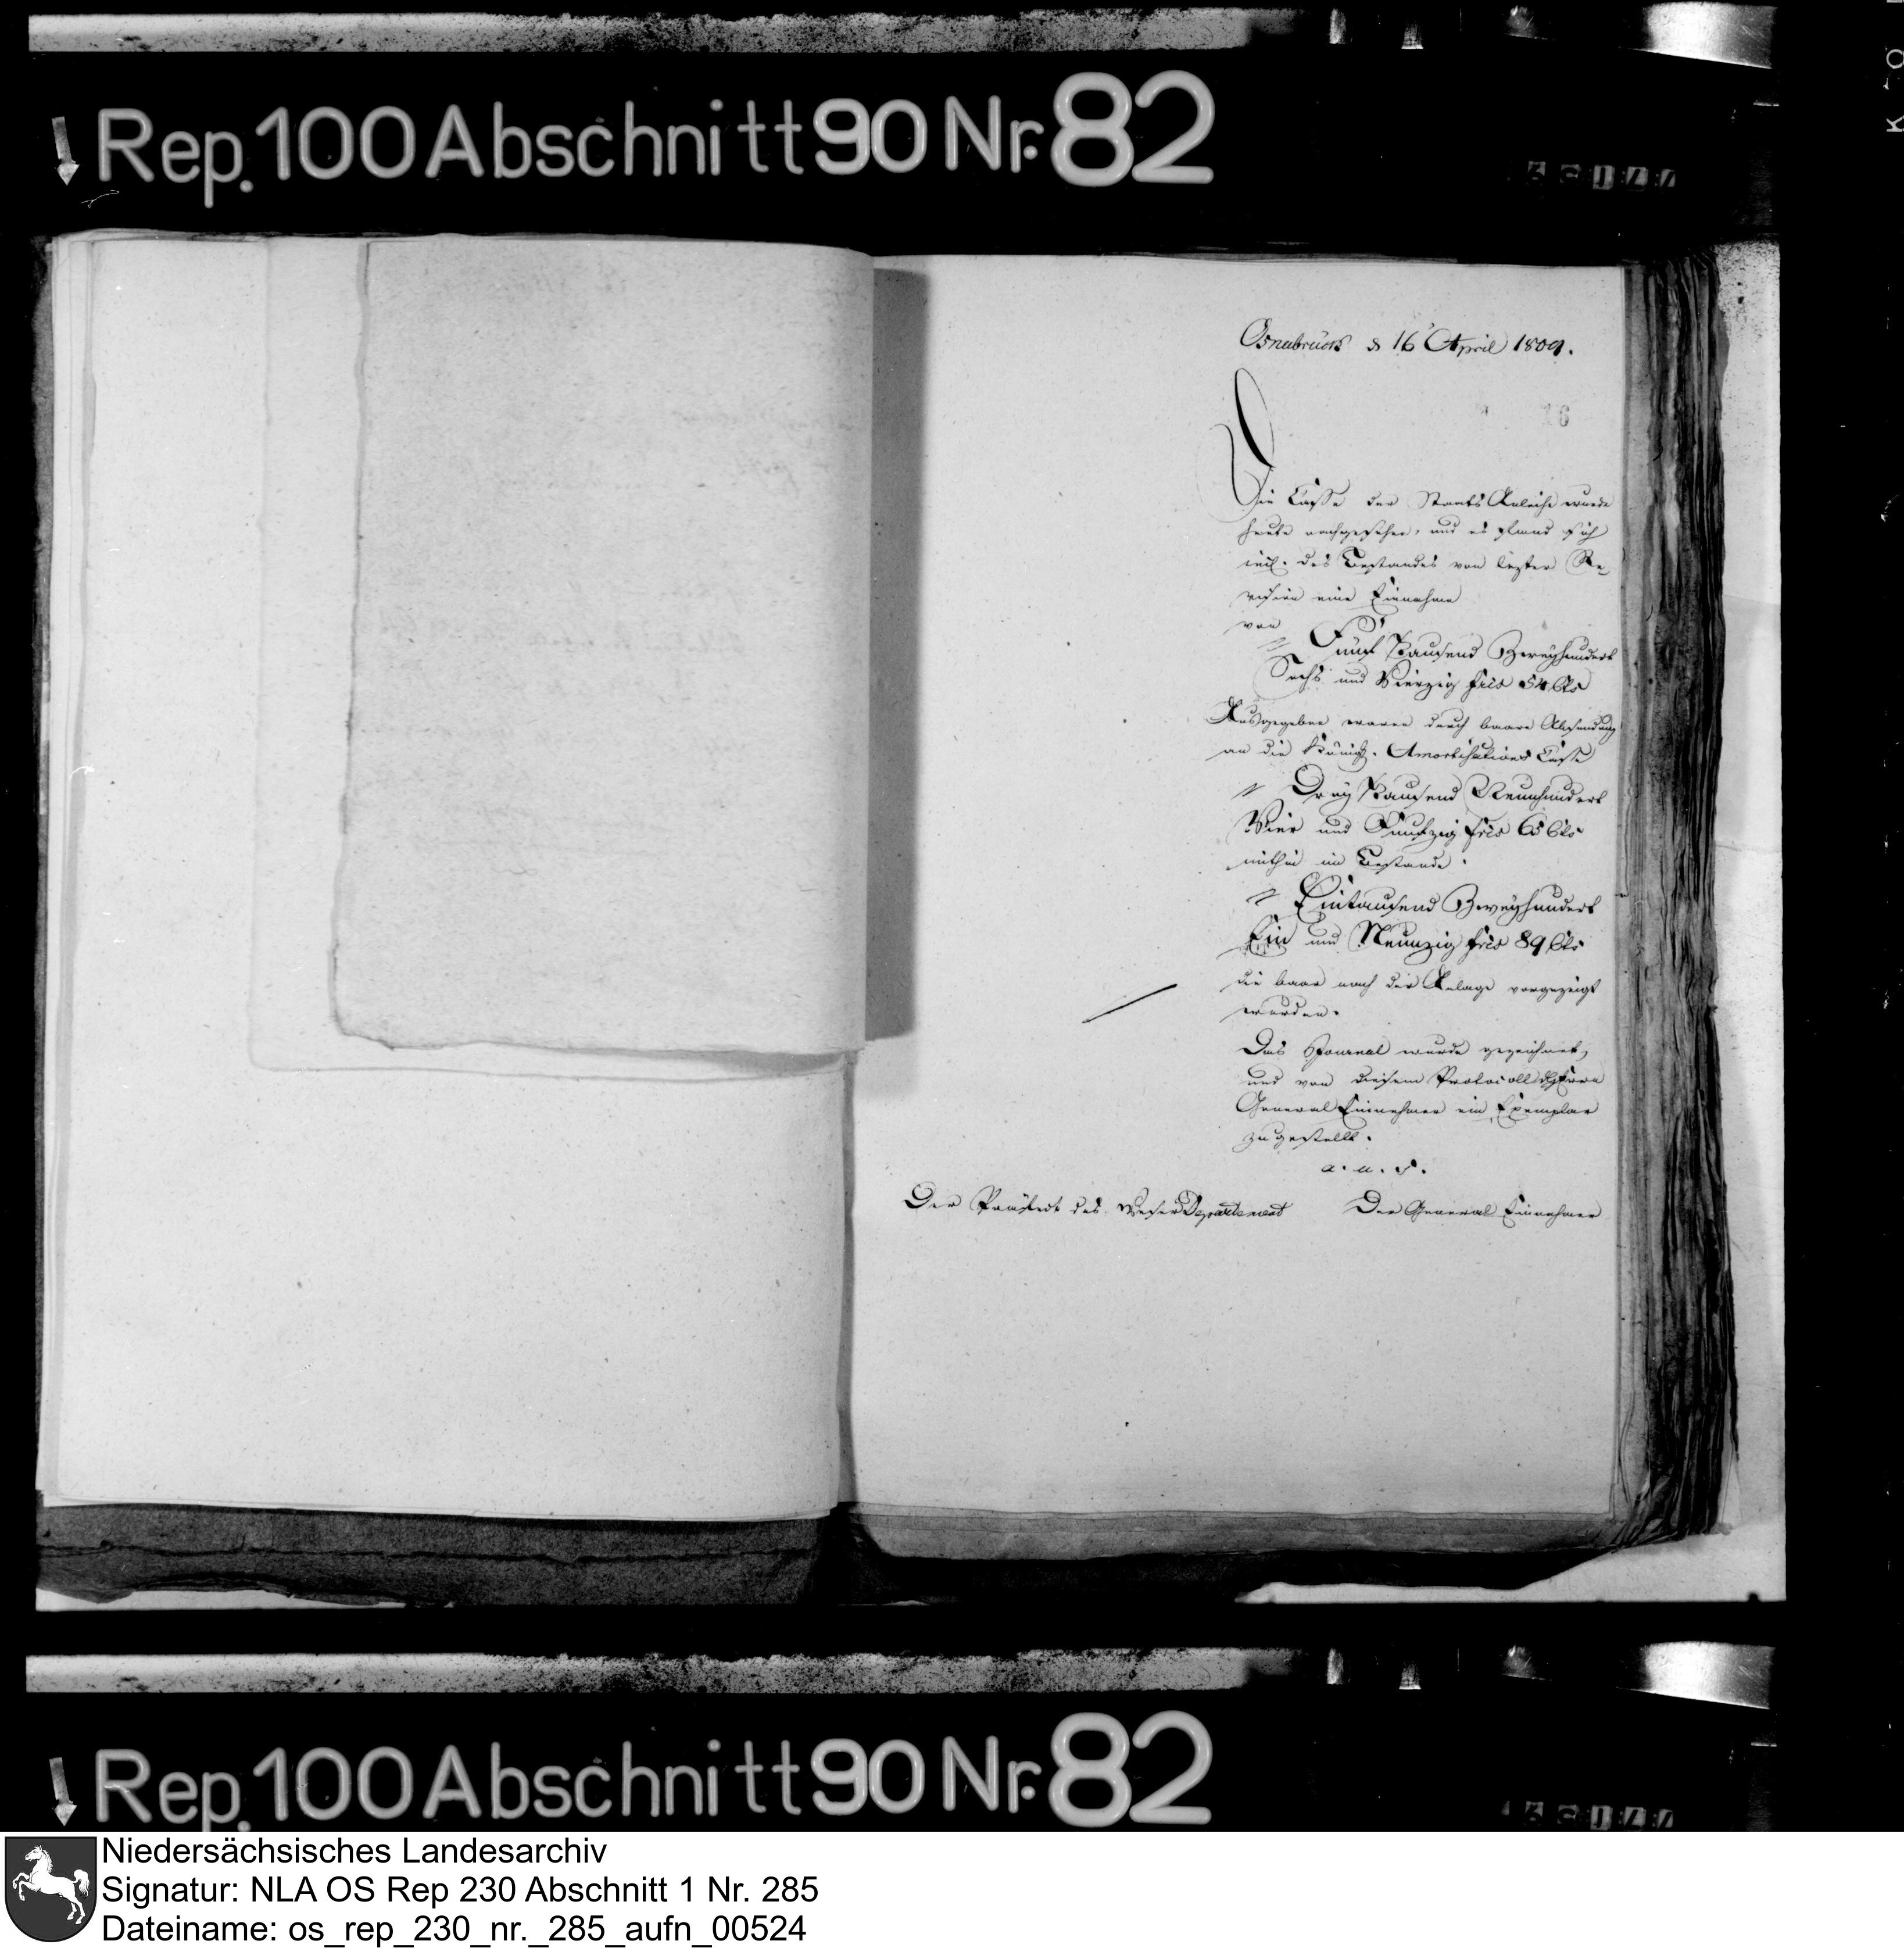 Rep. 100 Abschnitt 90 Nr. 82
Osnabrück d 16 April 1809.
16
Die Casse der Staats Anleihe wurde
heute nachgesehen, und es fand sich
incl. des Bestandes von lezter Re-
vision eine Einnahme
von
" Fünf Tausend Zweyhundert
Sechs und Vierzig frcs 54 Cts
Ausgegeben waren durch baare Absendung
an die Königl. Amortisations Casse
" Drey Tausend Neunhundert
Vier und Funfzig frcs 65 Cts
mithin im Bestande.
" Eintausend Zweyhundert
Ein und Neunzig frcs 89 Cts
die baar nach der Anlage vorgezeigt
wurden.
Das Journal wurde gezeichnet,
und von diesem Protocoll dem
General Einnehmer ein Exemplar
zugestellt.
a. u. s.
Der Präfect des Weser Departement Der General Einnehmer
Rep. 100 Abschnitt 90 Nr. 82
Niedersächsisches Landesarchiv
Signatur: NLA OS Rep 230 Abschnitt 1 Nr. 285
Dateiname: os_rep_230_nr._285_aufn_00524